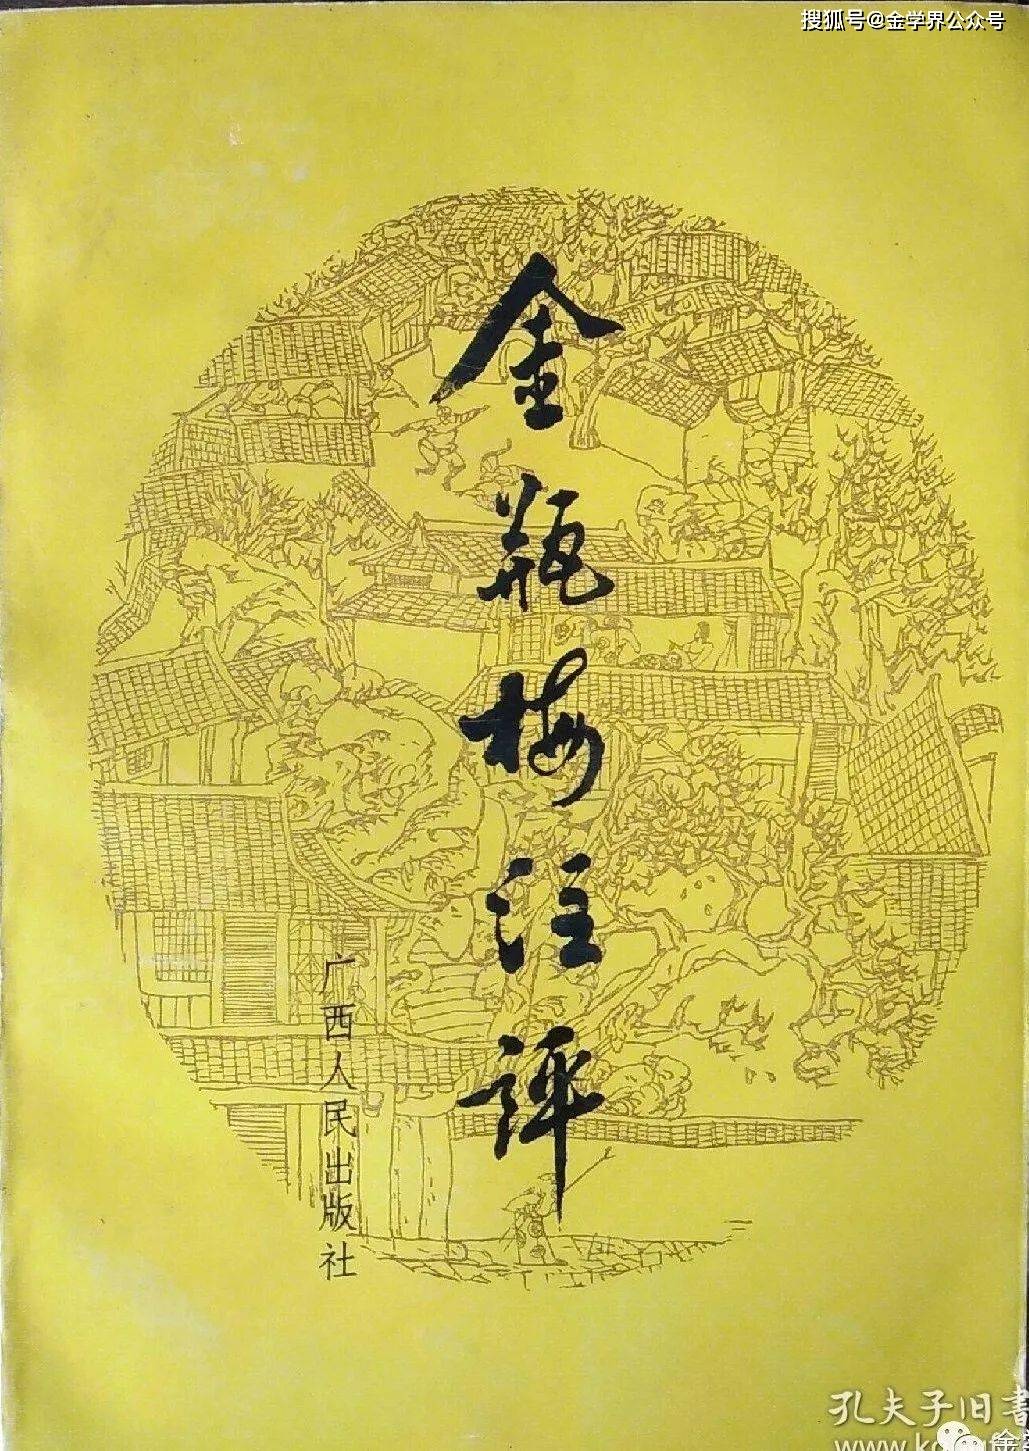 搜狐号@金学界公众号
金瓶梅注评
广西人民出版社
孔夫子旧書
www.k
金